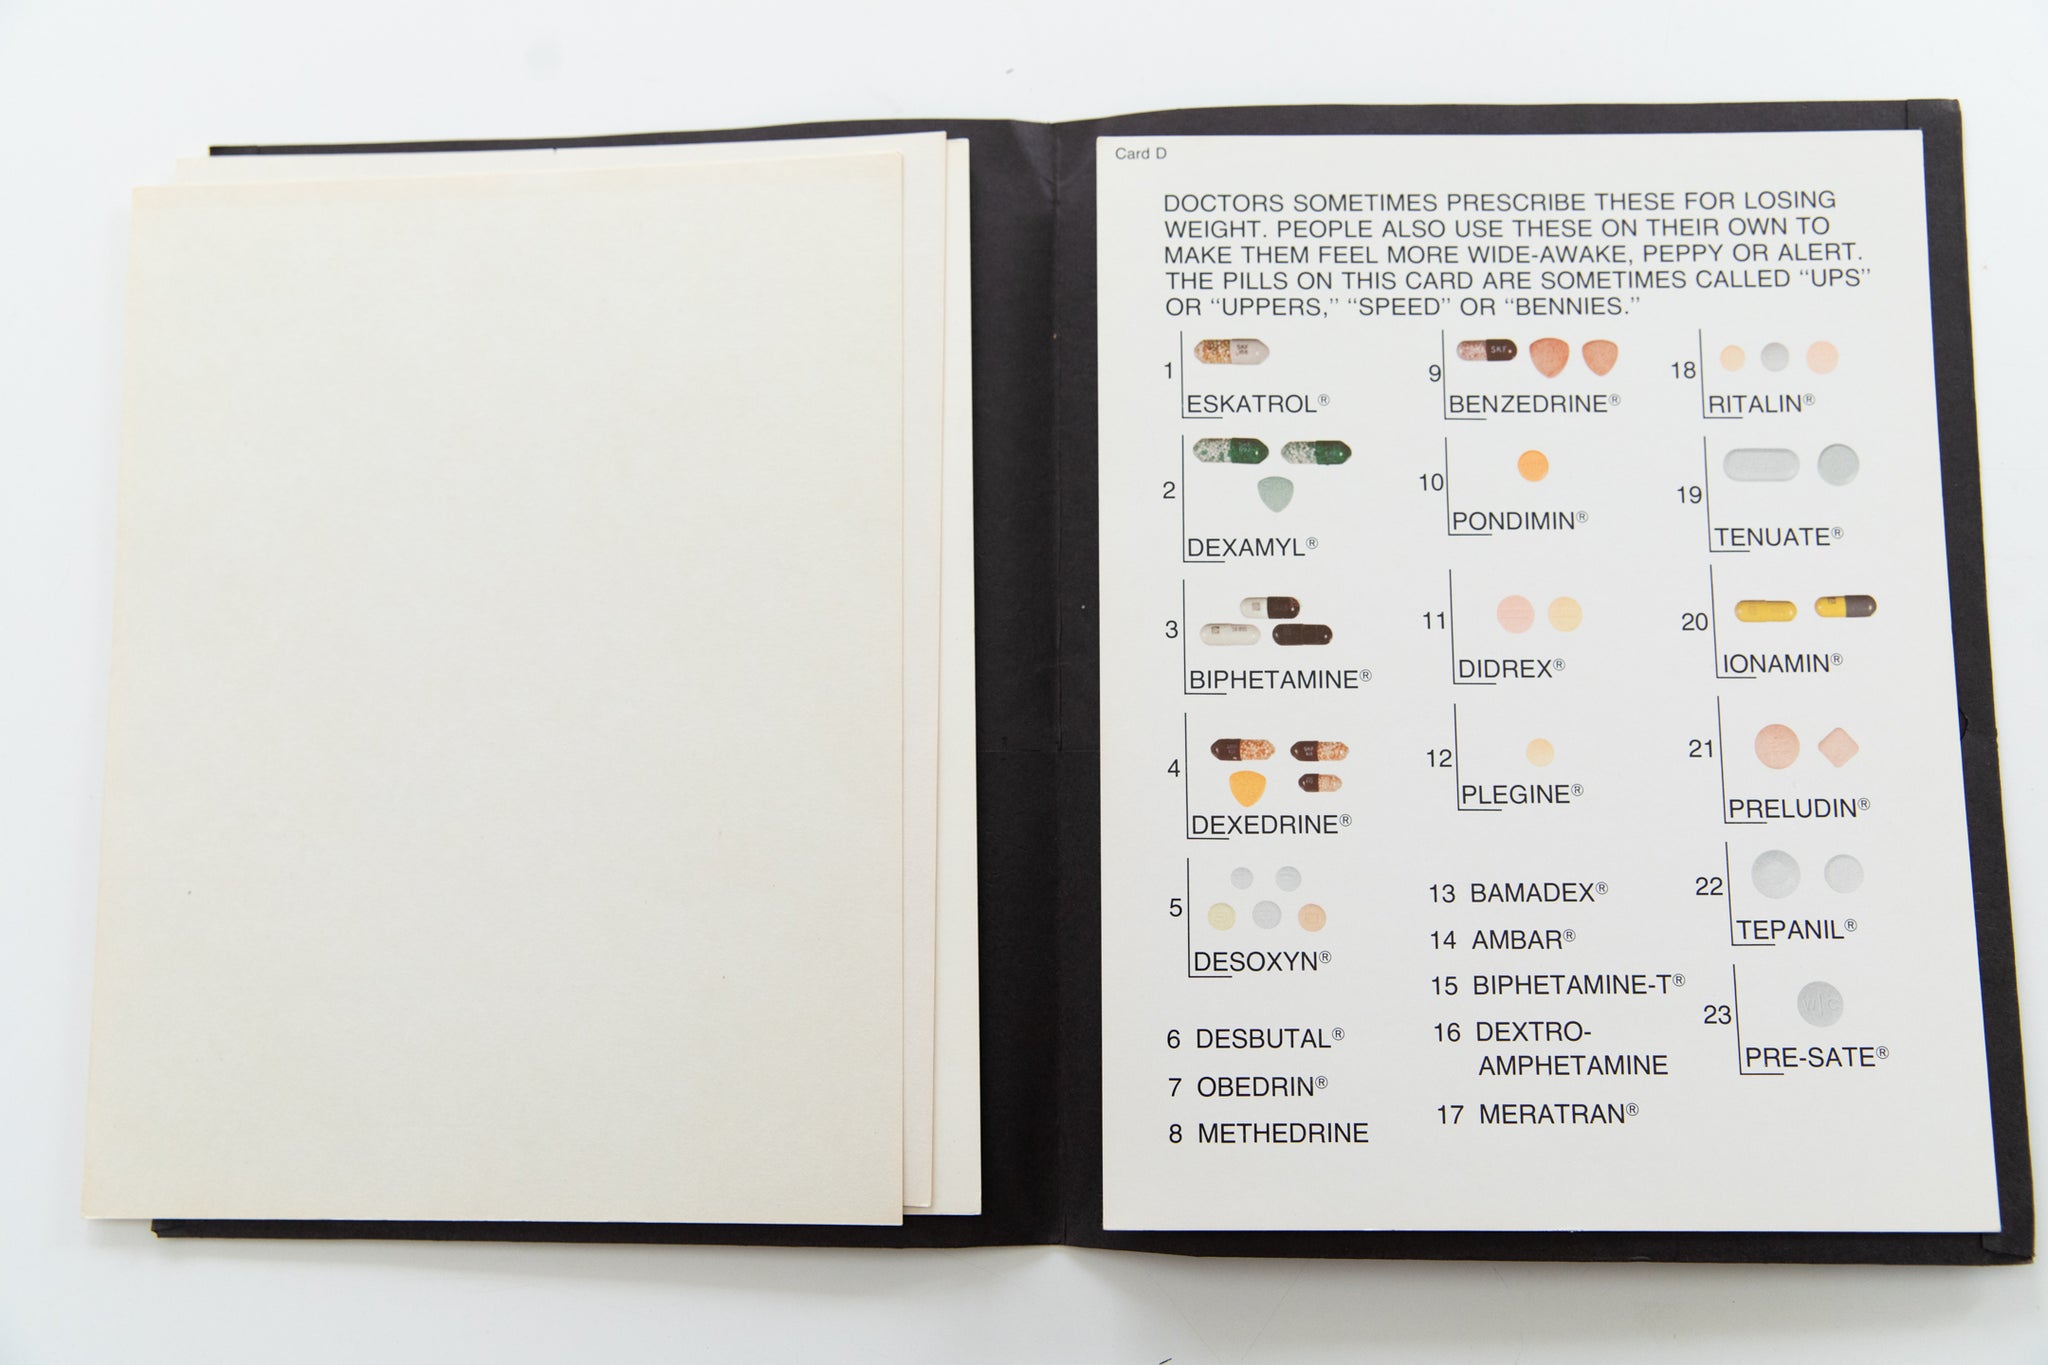 Card D
DOCTORS SOMETIMES PRESCRIBE THESE FOR LOSING
WEIGHT. PEOPLE ALSO USE THESE ON THEIR OWN TO
MAKE THEM FEEL MORE WIDE-AWAKE, PEPPY OR ALERT.
THE PILLS ON THIS CARD ARE SOMETIMES CALLED “UPS”
OR “UPPERS,” “SPEED” OR “BENNIES.”
1 ESKATROL®
2 DEXAMYL®
3 BIPHETAMINE®
4 DEXEDRINE®
5 DESOXYN®
6 DESBUTAL®
7 OBEDRIN®
8 METHEDRINE
9 SKF
BENZEDRINE®
10 PONDIMIN®
11 DIDREX®
12 PLEGINE®
13 BAMADEX®
14 AMBAR®
15 BIPHETAMINE-T®
16 DEXTRO-
AMPHETAMINE
17 MERATRAN®
18 RITALIN®
19 TENUATE®
20 IONAMIN®
21 PRELUDIN®
22 TEPANIL®
23 W/C
PRE-SATE®